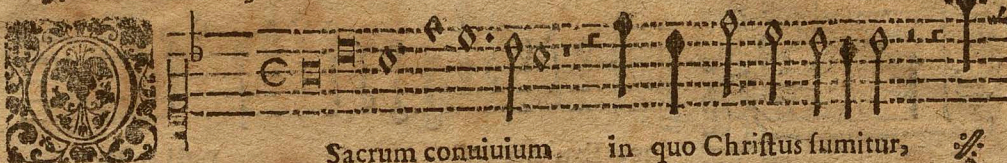 O Sacrum conuiuium in quo Chriſtus ſumitur,